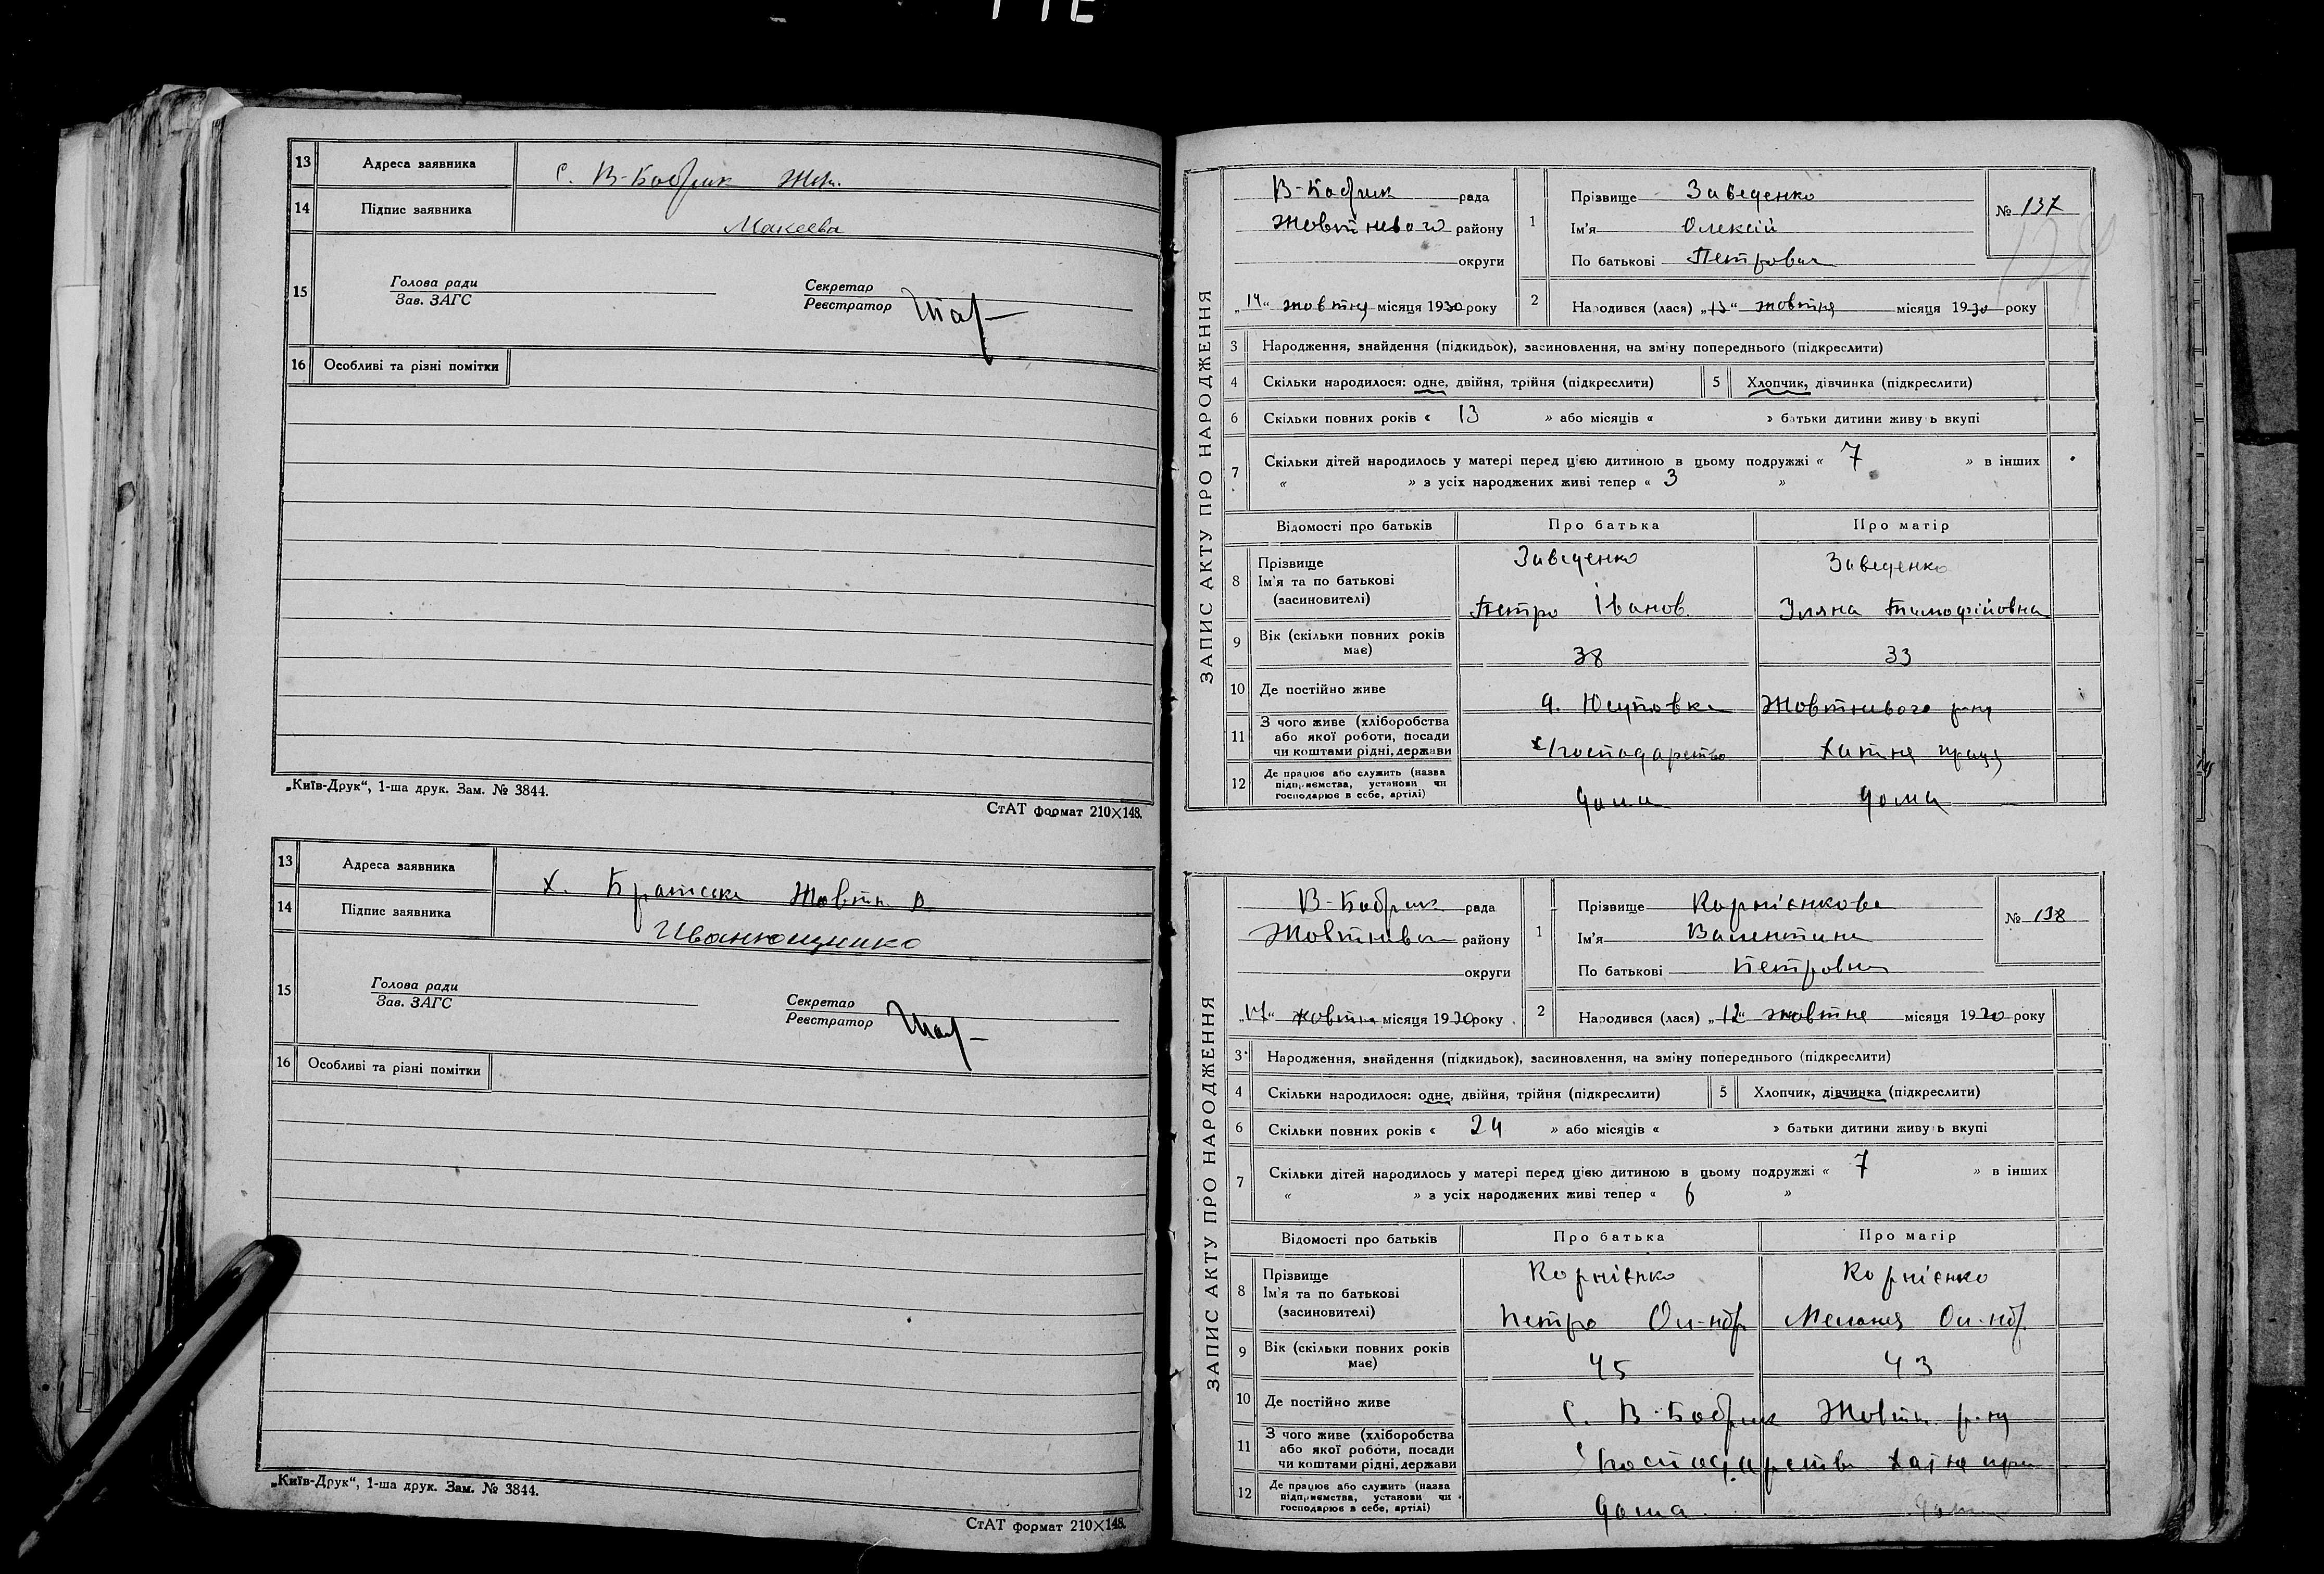 13 Адреса заявника С. В-Бобрик Жовт.
14 Підпис заявника Макеева
15 Голова ради
Зав. ЗАГС
Секретар
Реєстратор
16 Особливі та різні помітки
„Київ-Друк“, 1-ша друк. Зам. № 3844.
СтАТ формат 210×148.
13 Адреса заявника х. Братське Жовтн
14 Підпис заявника Иванющенко
15 Голова ради
Зав. ЗАГС
Секретар
Реєстратор
16 Особливі та різні помітки
„Київ-Друк“, 1-ша друк. Зам. № 3844.
СтАТ формат 210×148.
ЗАПИС АКТУ ПРО НАРОДЖЕННЯ
В-Бобрик рада
Жовтневого району
округи
„14“ жовтня місяця 1930 року
1 Прізвище Заведенко
Ім'я Олексій
По батькові Петрович
№ 137
2 Народився (лася) „13“ жовтня місяця 1930 року
3 Народження, знайдення (підкидьок), засиновлення, на зміну попереднього (підкреслити)
4 Скільки народилося: одне, двійня, трійня (підкреслити) 5 Хлопчик, дівчинка (підкреслити)
6 Скільки повних років « 13 » або місяців « » батьки дитини живуть вкупі
7 Скільки дітей народилось у матері перед цією дитиною в цьому подружжі « 7 » в інших
« » з усіх народжених живі тепер « 3 »
Відомості про батьків Про батька Про матір
8 Прізвище Заведенко Заведенко
Ім'я та по батькові
(засиновителі) Петро Іванов. Уляна Тимофіївна
9 Вік (скільки повних років має) 38 33
10 Де постійно живе Юсуповка Жовтневого р-ну
11 З чого живе (хліборобства
або якої роботи, посади
чи коштами рідні, держави господарство хатня праця
12 Де працює або служить (назва
підприємства, установи чи
господарює в себе, артілі) дома дома
ЗАПИС АКТУ ПРО НАРОДЖЕННЯ
В-Бобрик рада
Жовтнев району
округи
„17“ жовтня місяця 1930 року
1 Прізвище Корнієнкова
Ім'я Валентина
По батькові Петровна
№ 138
2 Народився (лася) „12“ жовтня місяця 1930 року
3 Народження, знайдення (підкидьок), засиновлення, на зміну попереднього (підкреслити)
4 Скільки народилося: одне, двійня, трійня (підкреслити) 5 Хлопчик, дівчинка (підкреслити)
6 Скільки повних років « 24 » або місяців « » батьки дитини живуть вкупі
7 Скільки дітей народилось у матері перед цією дитиною в цьому подружжі « 7 » в інших
« » з усіх народжених живі тепер « 6 »
Відомості про батьків Про батька Про матір
8 Прізвище Корнієнко Корнієнко
Ім'я та по батькові
(засиновителі) Петро Ол-ндр Меланя Ол-ндр
9 Вік (скільки повних років має) 45 43
10 Де постійно живе С. В-Бобрик Жовтн. р-ну
11 З чого живе (хліборобства
або якої роботи, посади
чи коштами рідні, держави господарство хатня пра
12 Де працює або служить (назва
підприємства, установи чи
господарює в себе, артілі) дома дома